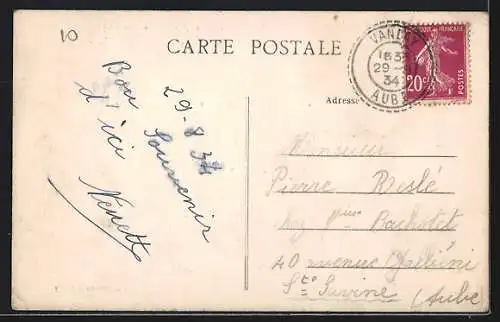 10
CARTE POSTALE
VAND
1835
29
34
AUBE
FRANÇAISE
20c
POSTES
Adresse
29-8 34
Souvenir
Bon
d'ici
Nenette
Monsieur
Pierre Reslé
chez Mme Bachotet
40 avenue Galliéni
Ste Savine (Aube)